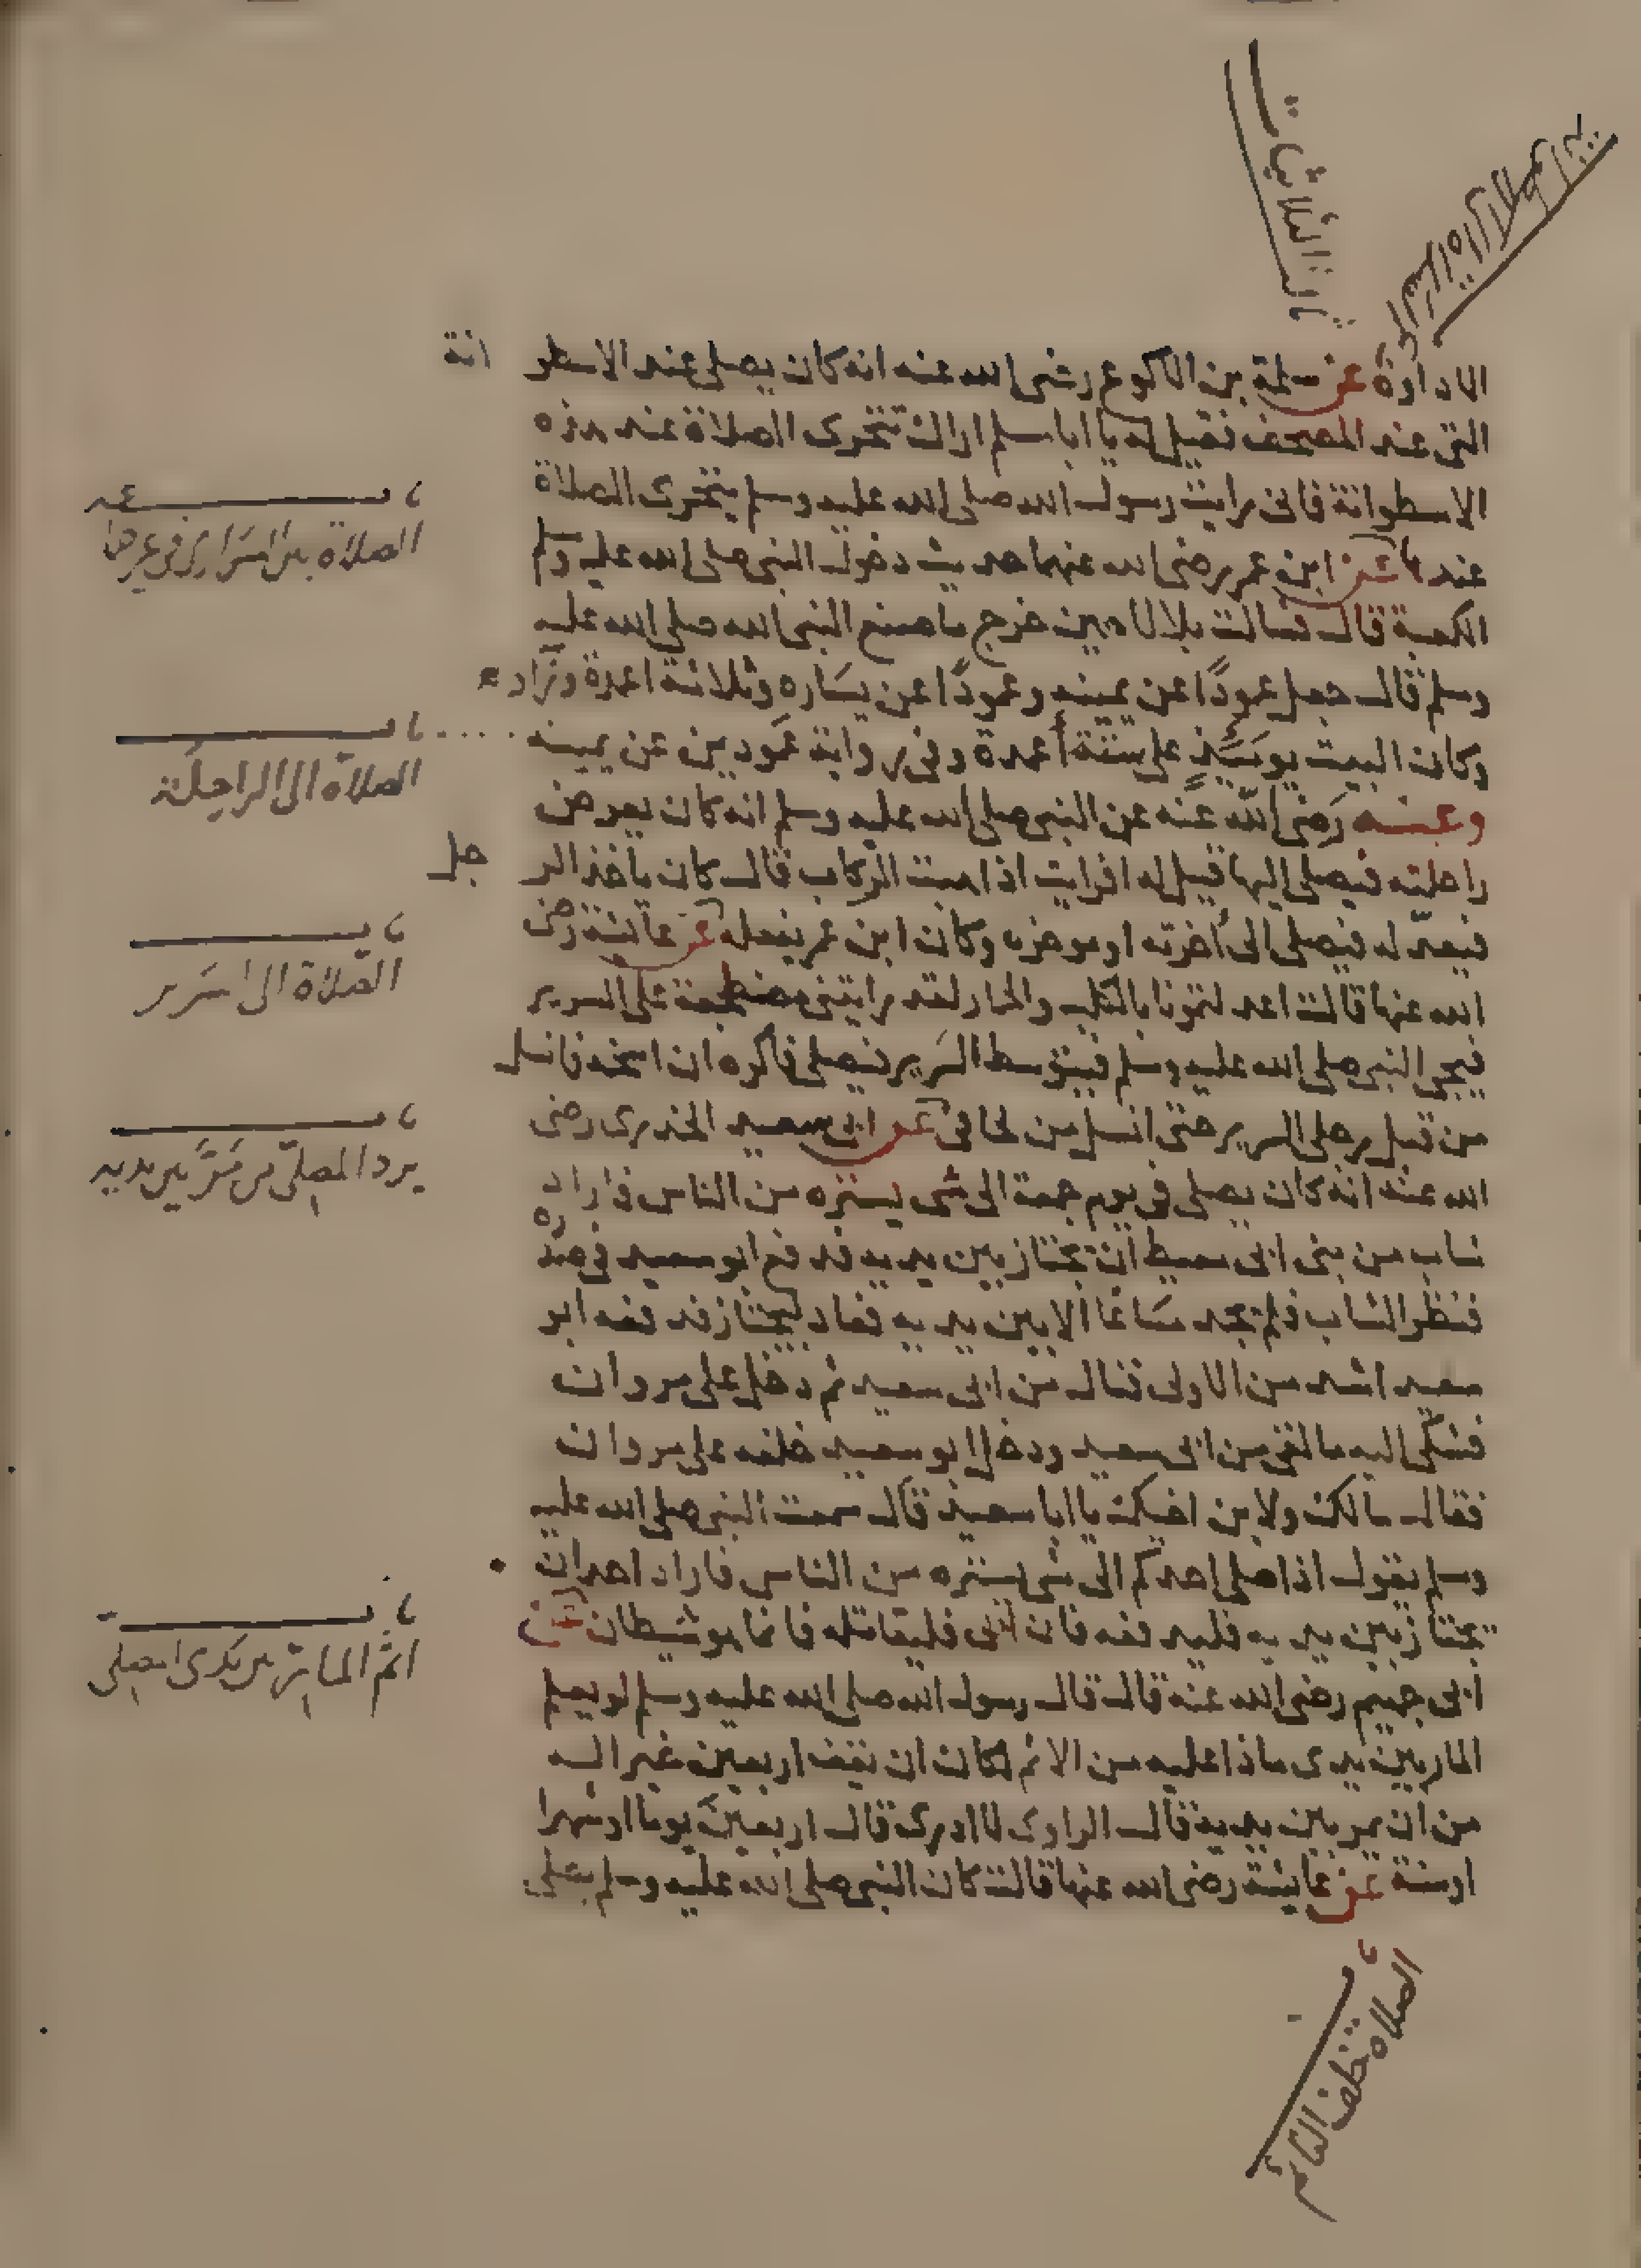 ثالث الثلاثيات
الصلاة الى الاسطوانة
الاداوة عن سلمة بن الاكوع رضى الله عنه انه كان يصلى عند الاسطوانة
التى عند المصحف فقيل له يا ابا مسلم اراك تتحرى الصلاة عند هذه
الاسطوانة قال فانى رايت رسول الله صلى الله عليه وسلم يتحرى الصلاة
عندها عن ابن عمر رضى الله عنهما حديث دخول النبى صلى الله عليه وسلم
الكعبة قال فسالت بلالا حين خرج ما صنع النبى صلى الله عليه
وسلم قال جعل عمودًا عن يمينه وعمودًا عن يساره وثلاثة اعمدة وراءه
وكان البيت يومَئِذٍ على ستة أعمدة وفى رواية عمودين عن يمينه
وعنه رضى الله عنه عن النبى صلى الله عليه وسلم انه كان يعرض
راحلته فيصلى اليها قيل له افرايت اذا هبت الركاب قال كان ياخذ الرحل
فيعدله فيصلى الى أخرته او موخره وكان ابن عمر يفعله عن عائشة رضى
الله عنها قالت اعدلتمونا بالكلب والحمار لقد رايتنى مضطجعة على السرير
فيجى النبى صلى الله عليه وسلم فيتوسط السرير فيصلى فاكره ان اسنحه فانسل
من قبل رجلى السرير حتى انسل من لحافى عن ابى سعيد الخدرى رضى
الله عنه انه كان يصلى فى يوم جمعة الى شى يستره من الناس فاراد
شاب من بنى ابى معيط ان يجتاز بين يديه فدفع ابو سعيد فى صدره
فنظر الشاب فلم يجد مساغا الا بين يديه فعاد ليجتاز فدفعه ابو
سعيد اشد من الاولى فنال من ابى سعيد ثم دخل على مروان
فشكى اليه ما لقى من ابى سعيد ودخل ابو سعيد خلفه على مروان
فقال مالك ولابن اخيك يا ابا سعيد قال سمعت النبى صلى الله عليه
وسلم يقول اذا صلى احدكم الى شى يستره من الناس فاراد احد ان
يجتاز بين يديه فليدفعه فان ابى فليقاتله فانما هو شيطان عن
ابى جهيم رضى الله عنه قال قال رسول الله صلى الله عليه وسلم لو يعلم
المار بين يدى ماذا عليه من الاثم لكان ان يقف اربعين خير اله
من ان يمر بين يديه قال الراوى لا ادرى قال اربعين يوما او شهرا
او سنة عن عايشة رضى الله عنها قالت كان النبى صلى الله عليه وسلم يصلى
الصلاة بين السوارى فى غير جماعه
الصلاة الى الراحلة
الصّلاة الى السَرير
يرد المصلّى من مَرَّ بين يديه
اثم المار بين يدى المصلى
الصلاة خلف النائم